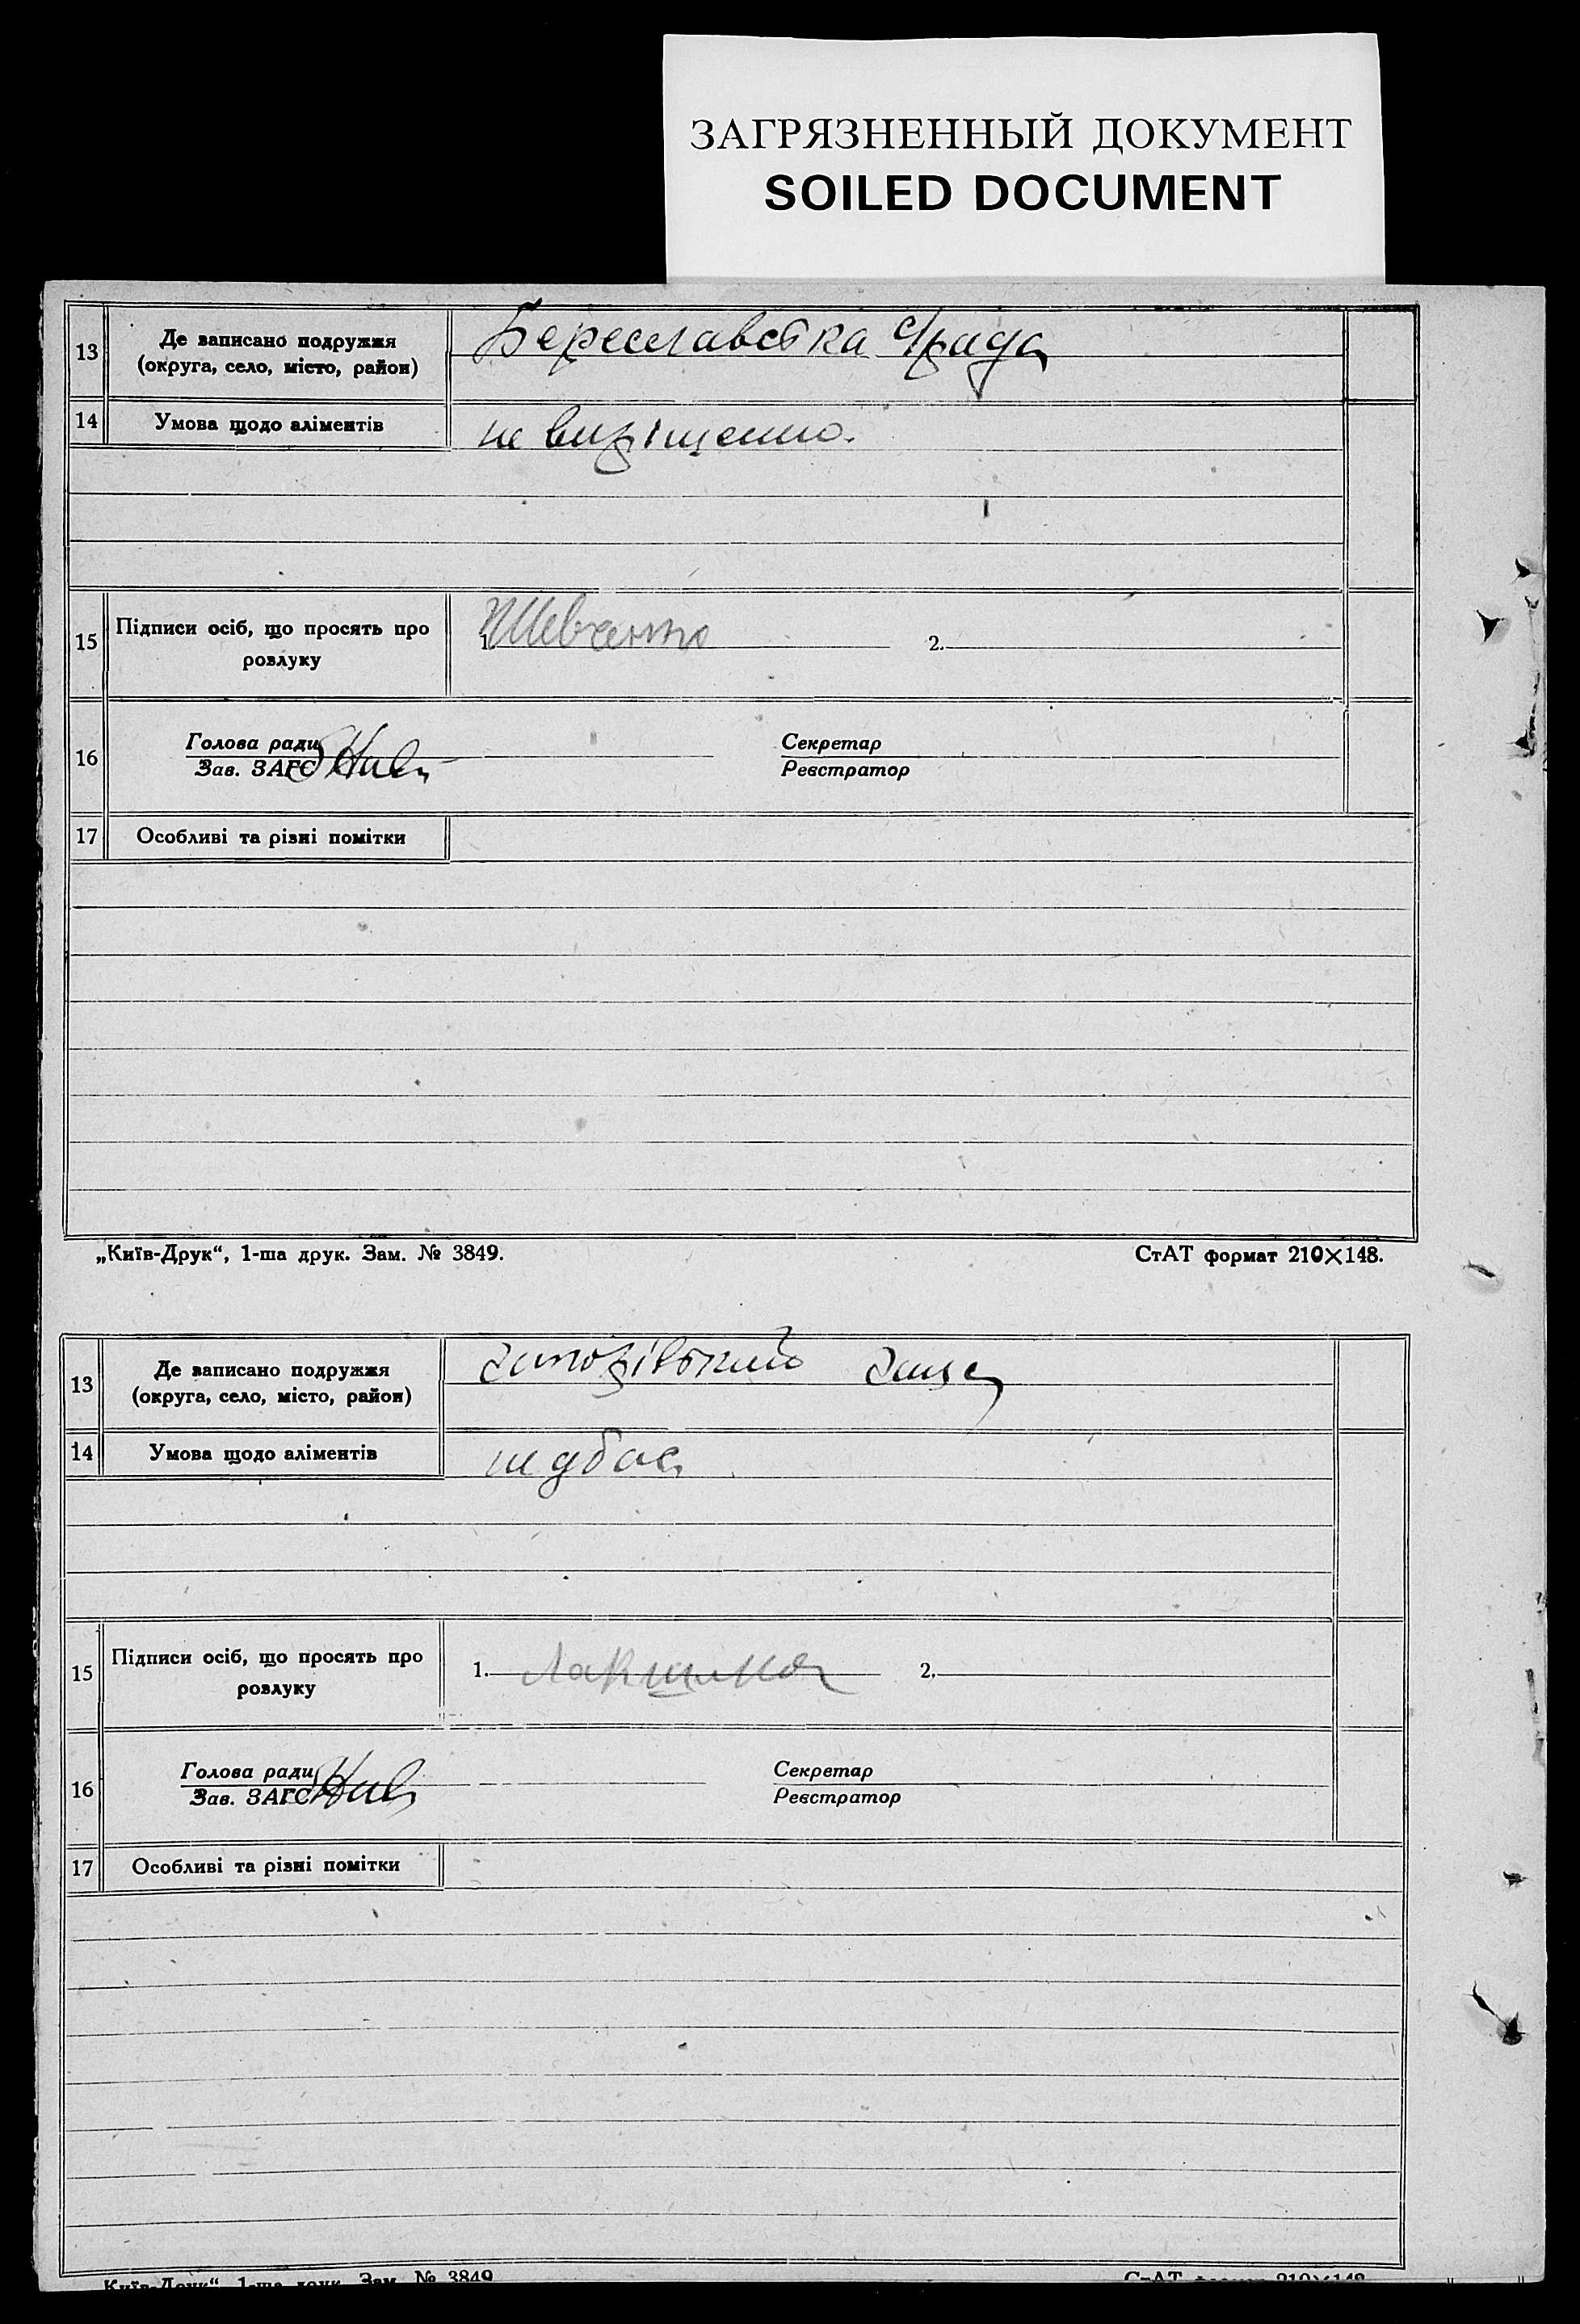 ЗАГРЯЗНЕННЫЙ ДОКУМЕНТ
SOILED DOCUMENT
13
Де записано подружжя
(округа, село, місто, район)
Береславська с/рада
14
Умова щодо аліментів
не вирішенно.
15
Підписи осіб, що просять про
розлуку
1.
2.
16
Голова ради
Зав. ЗАГС
Секретар
Реєстратор
17
Особливі та різні помітки
„Київ-Друк“, 1-ша друк. Зам. № 3849.
СтАТ формат 210×148.
13
Де записано подружжя
(округа, село, місто, район)
14
Умова щодо аліментів
15
Підписи осіб, що просять про
розлуку
1.
2.
16
Голова ради
Зав. ЗАГС
Секретар
Реєстратор
17
Особливі та різні помітки
Київ-Друк“, 1-ша друк. Зам. № 3849
СтАТ формат 210×148